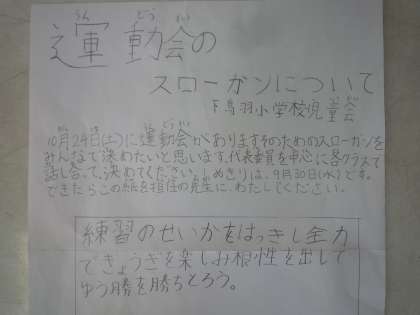 運動会の
スローガンについて
下鳥羽小学校児童会
10月24日(土)に運動会がありますそのためのスローガンを
みんなで決めたいと思います。代表委員を中心に各クラスで
話し合って、決めてください。しめきりは、9月30日(水)です。
できたらこの紙を担任の先生に、わたしてください。
練習のせいかをはっきし全力
できょうぎを楽しみ根性を出して
ゆう勝を勝ちとろう。